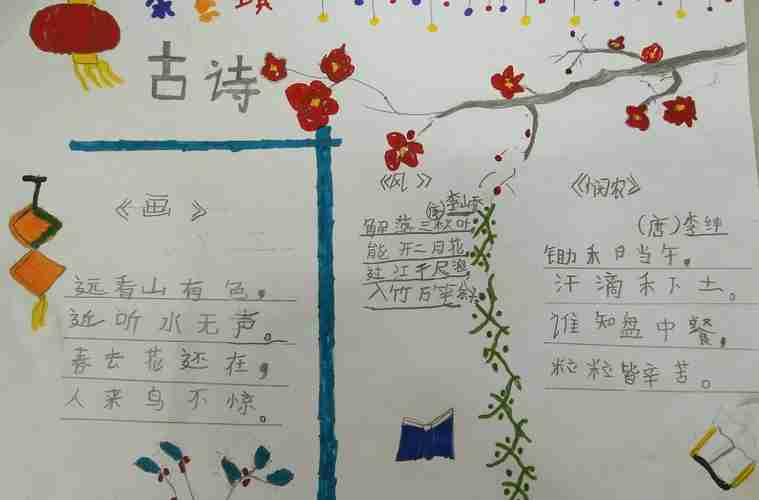 古诗
《画》
远看山有色，
近听水无声。
春去花还在，
人来鸟不惊。
《风》
(唐)李峤
解落三秋叶
能开二月花，
过江千尺浪，
入竹万竿斜
《悯农》
(唐)李绅
锄禾日当午。
汗滴禾下土。
谁知盘中餐，
粒粒皆辛苦。